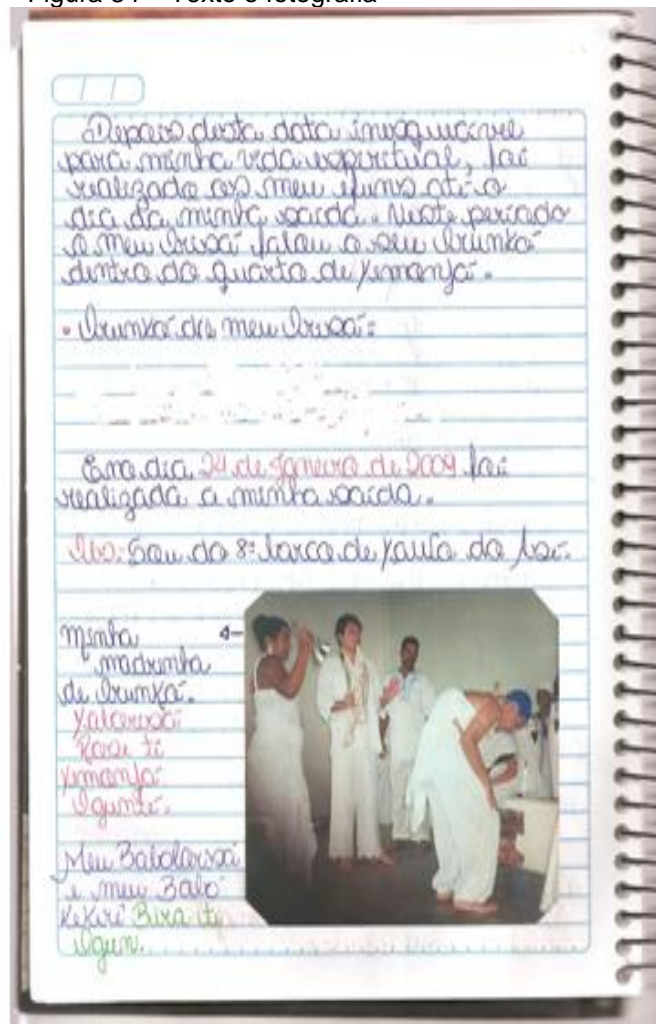 Depois desta data inesquecível
para minha vida espiritual, foi
realizado os meu ejuns até o
dia da minha saída. Neste período
o meu Orixá falou o seu Orunkó
dentro do quarto de Yemanjá.
• Orunkó do meu Orixá:
Em dia 24 de Janeiro de 2009 foi
realizada a minha saída.
Obs: Sou do 8º barco de Yaufa do
Minha
madrinha
de Orunkó.
Yalorixá
ti
Yemanjá
Ogunté.
Meu Babalorixá
e meu Babá
Kekerê Bira ti
Ogun.